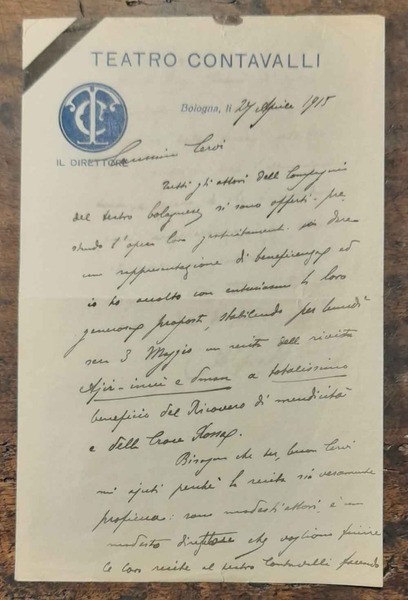 TEATRO CONTAVALLI
Bologna, li 27 Aprile 1915
IL DIRETTORE
Carissimo Cervi
Tutti gli attori della Compagnia
del teatro bolognese si sono offerti pre-
stando l'opera loro gratuitamente di dare
una rappresentazione di beneficenza ed
io ho accolto con entusiasmo la loro
generosa proposta, stabilendo per lunedì
sera 3 Maggio una recita della rivista
Ajir-incu e dman a totalissimo
beneficio del Ricovero di mendicità
e della Croce Rossa.
Bisogna che tu, buon Cervi
mi ajuti perchè la recita sia veramente
proficua: sono modesti attori, è un
modesto direttore che vogliono finire
le loro recite al teatro Contavalli facendo